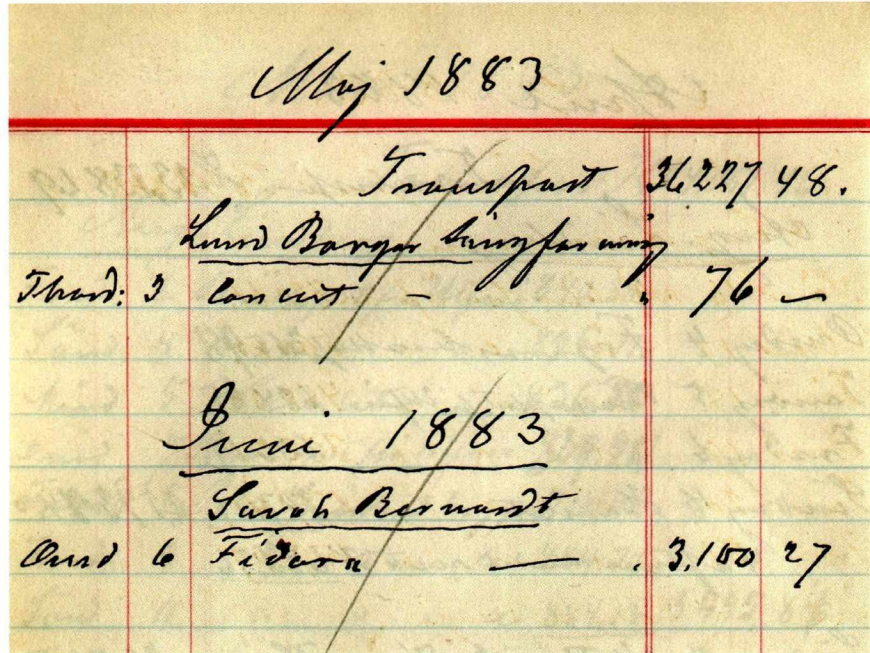 Maj 1883
Transport 36227 48.
Lund Borgar Sångförening
Thord: 3 Concert — " 76 —
Juni 1883
Sarah Bernardt
Onsd 6 Fédora — . 3,100 27